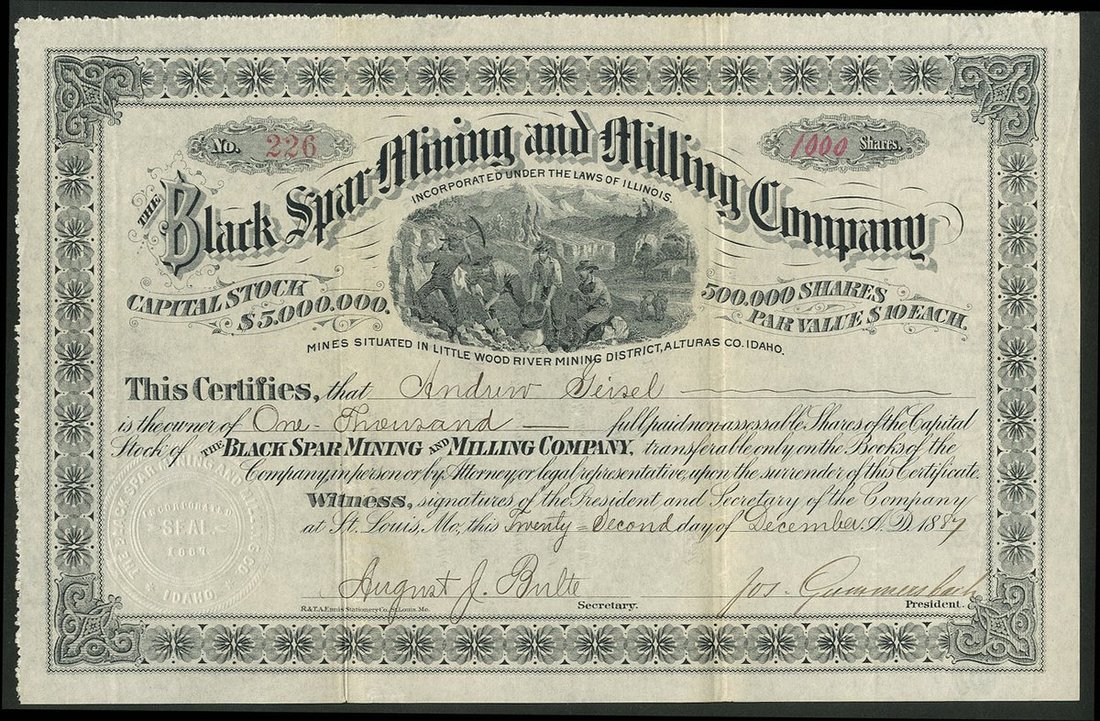 No. 226
1000 Shares.
THE Black Spar Mining and Milling Company
INCORPORATED UNDER THE LAWS OF ILLINOIS.
CAPITAL STOCK
$5,000.000.
500.000 SHARES
PAR VALUE $10 EACH.
MINES SITUATED IN LITTLE WOOD RIVER MINING DISTRICT, ALTURAS CO. IDAHO.
This Certifies, that Andrew Geisel
is the owner of One Thousand full paid non assessable Shares of the Capital
Stock of THE BLACK SPAR MINING AND MILLING COMPANY, transferable only on the Books of the
Company in person or by Attorney, or legal representative, upon the surrender of this Certificate.
Witness, signatures of the President and Secretary of the Company
at St. Louis, Mo, this Twenty-Second day of December A.D. 1887
THE BLACK SPAR MINING AND MILLING CO.
INCORPORATED
SEAL
1887
IDAHO
August J. Bulte
Jos. Gummersbach
R. & T. A. Ennis Stationery Co. St. Louis. Mo.
Secretary.
President.